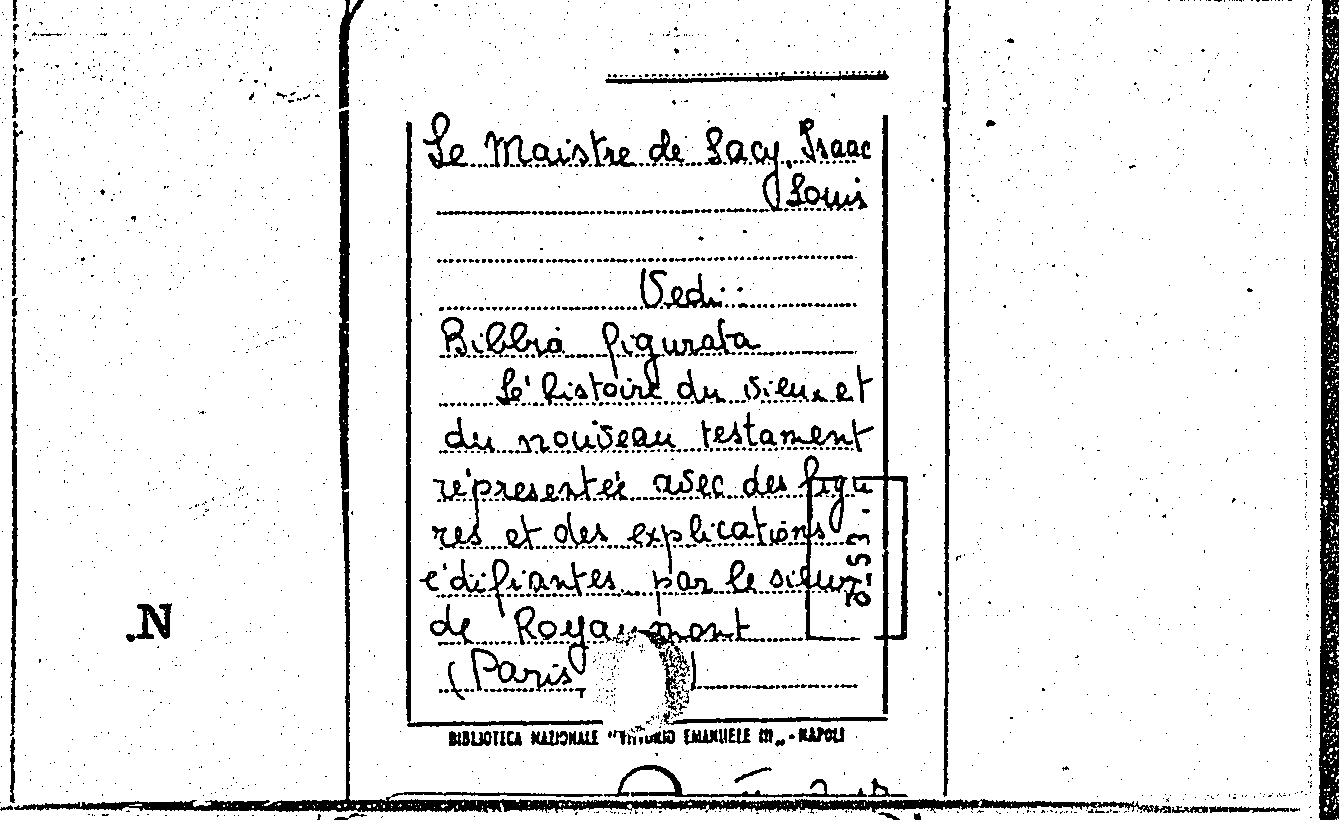 Le Maistre de Sacy, Isaac
Louis
Vedi:
Bibbia figurata
Le' histoire du vieu. et
du nouveau testament
représentée avec des figu
res et des explications
édifiantes par le sieur
de Royaumont
(Paris,
BIBLIOTECA NAZIONALE "VITTORIO EMANUELE III„ - NAPOLI
.N